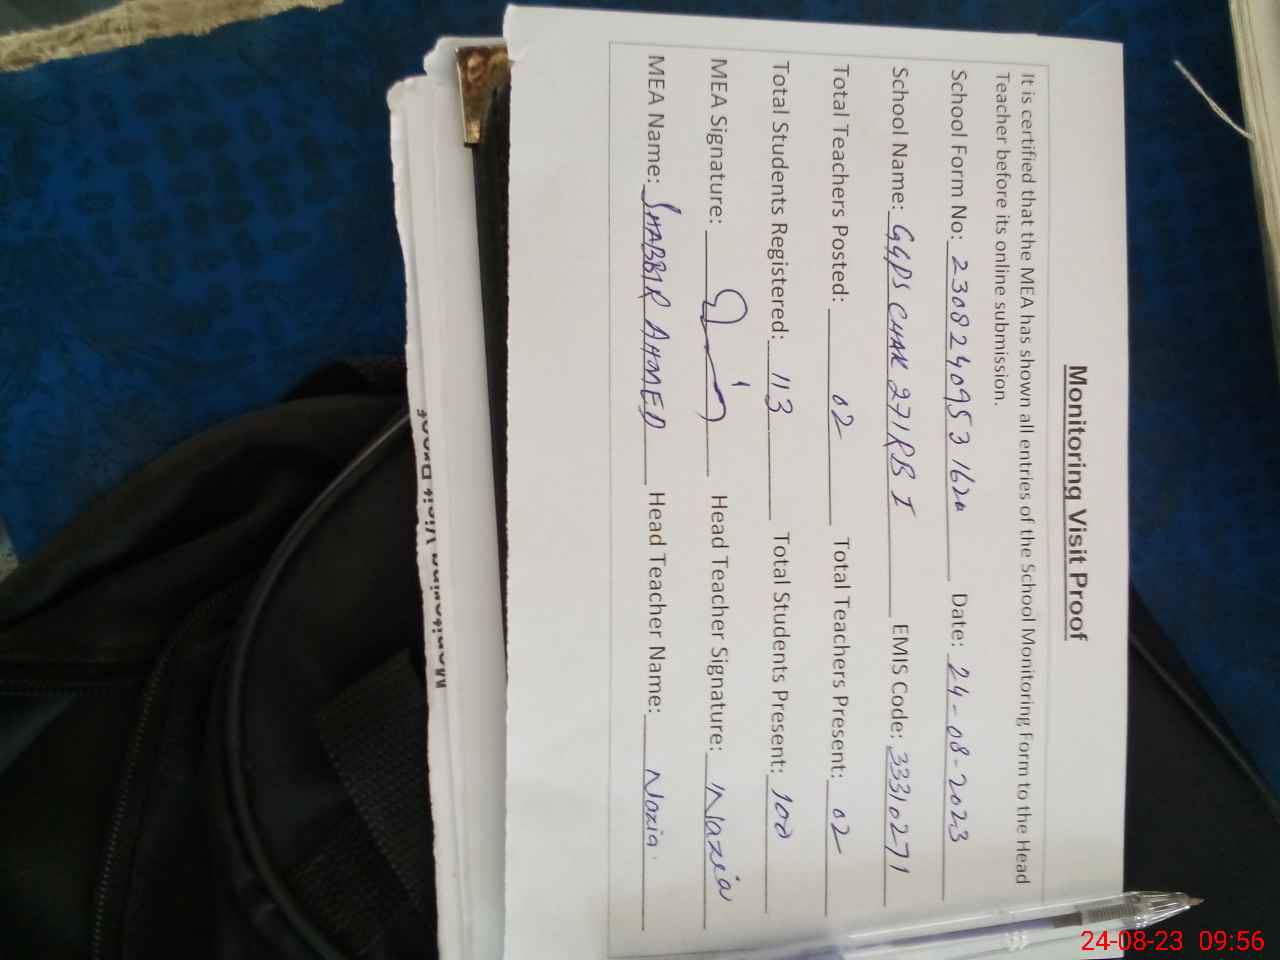 Monitoring Visit Proof
It is certified that the MEA has shown all entries of the School Monitoring Form to the Head
Teacher before its online submission.
School Form No: 23082409531620 Date: 24-08-2023
School Name: GGPS CHAK 271RB I EMIS Code: 33310271
Total Teachers Posted: 02 Total Teachers Present: 02
Total Students Registered: 113 Total Students Present: 100
MEA Signature: Head Teacher Signature: Nazia
MEA Name: SHABBIR AHMED Head Teacher Name: Nazia
Monitoring Visit Proof
24-08-23 09:56